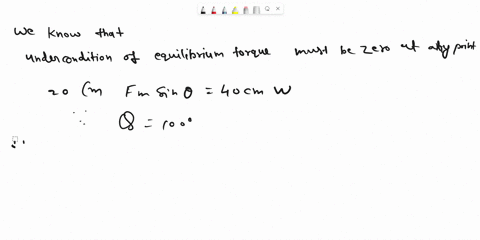 We know that
under condition of equilibrium torque must be zero at any point
20 Cm Fm Sin θ = 40 cm W
∵ θ = 100°
∴